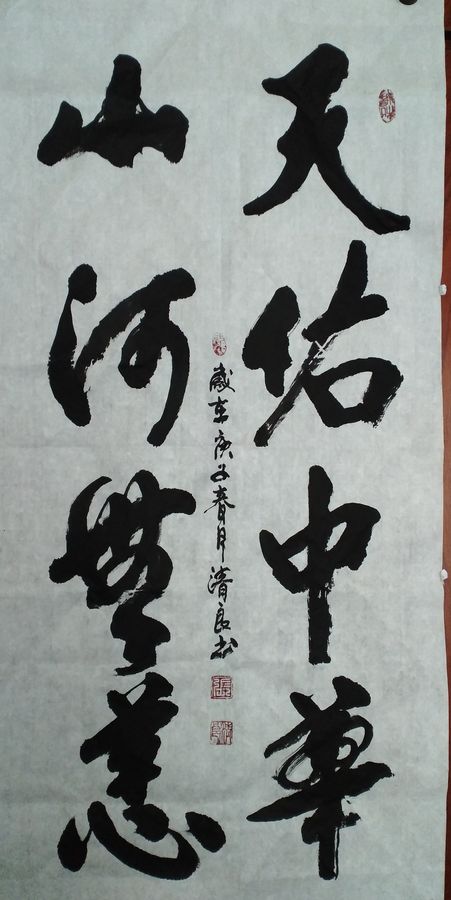 天佑中華
山河無恙
歲在庚子春月清良书